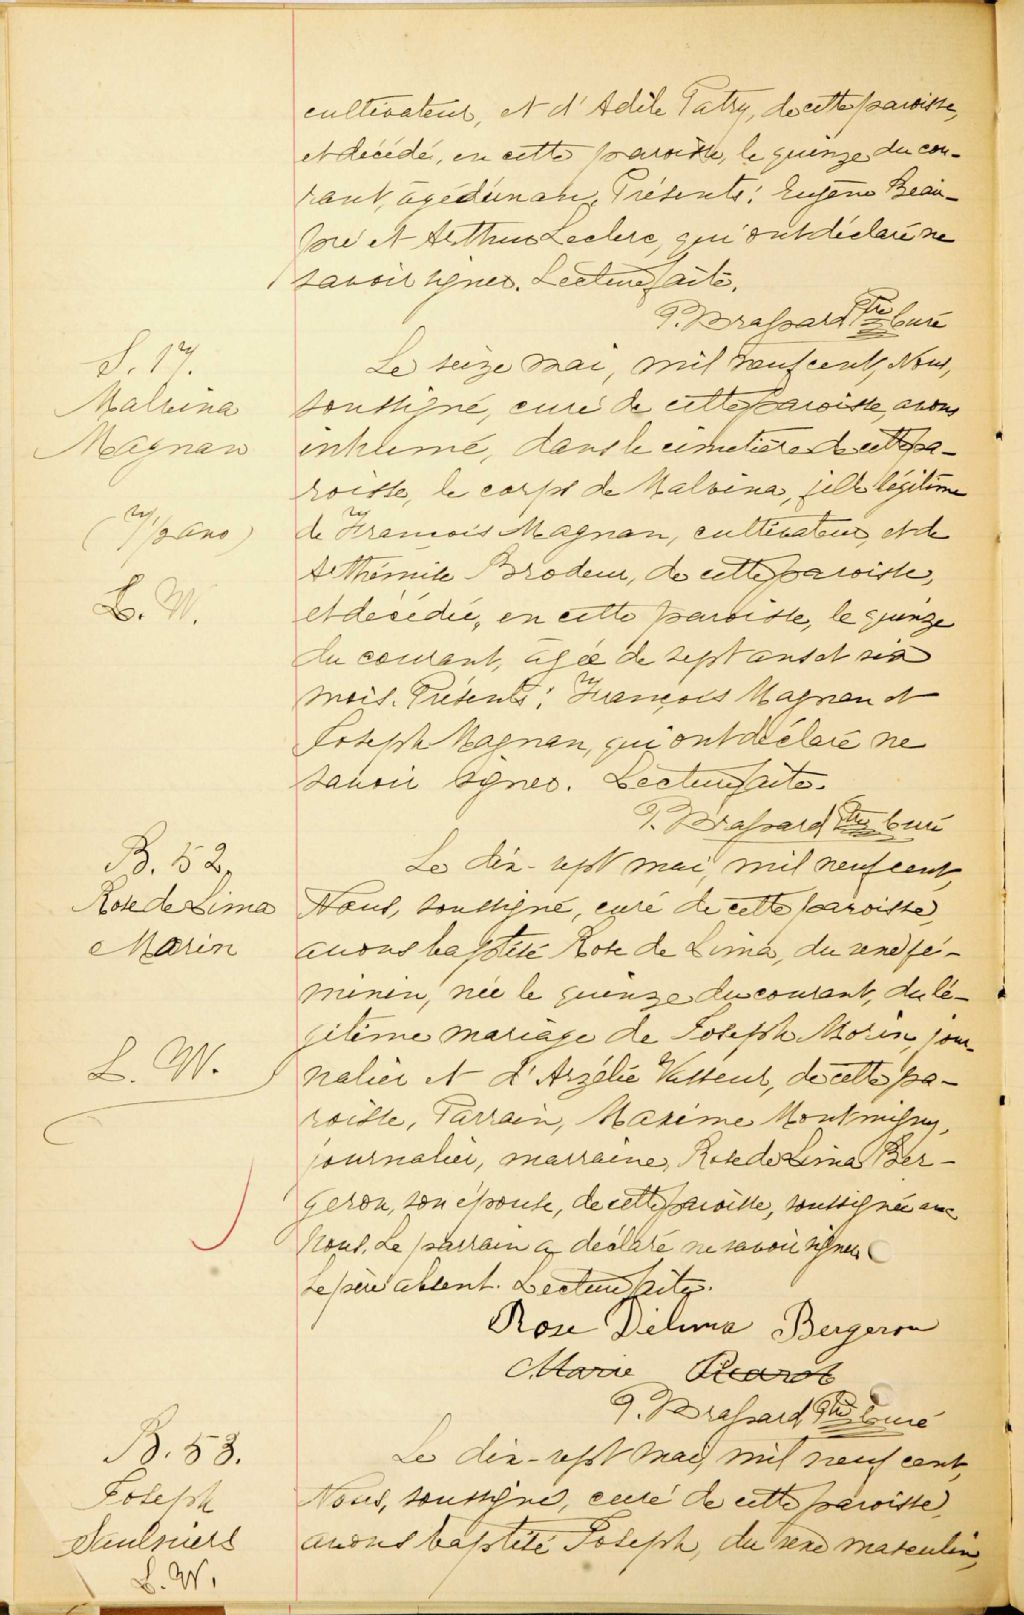 cultivateur, et d'Adèle Patry, de cette paroisse,
et décédé, en cette paroisse, le quinze du cou-
rant, âgé d'un an. Présents: Eugène Beau-
pré et Arthur Leclerc, qui ont déclaré ne
savoir signer. Lecture faite.
P. Brassard Ptre Curé
S. 17.
Malvina
Magnan
(7 1/2 ans)
L. W.
Le seize mai, mil neuf cent, Nous,
soussigné, curé de cette paroisse, avons
inhumé, dans le cimetière de cette pa-
roisse, le corps de Malvina, fille légitime
de François Magnan, cultivateur, et de
Arthémise Brodeur, de cette paroisse,
et décédée, en cette paroisse, le quinze
du courant, âgée de sept ans et six
mois. Présents: François Magnan et
Joseph Magnan, qui ont déclaré ne
savoir signer. Lecture faite.
P. Brassard Ptre Curé
B. 52.
Rose de Lima
Morin
L. W.
Le dix-sept mai, mil neuf cent,
Nous, soussigné, curé de cette paroisse,
avons baptisé Rose de Lima, du sexe fé-
minin, née le quinze du courant, du lé-
gitime mariage de Joseph Morin, jour-
nalier et d'Arzélie Vasseur, de cette pa-
roisse, Parrain, Maxime Montmigny,
journalier, marraine, Rose de Lima Ber-
geron, son épouse, de cette paroisse, soussignée avec
Nous. Le parrain a déclaré ne savoir signer.
Le père absent. Lecture faite.
Rose Délima Bergeron
Marie Picard
P. Brassard Ptre Curé
B. 53.
Joseph
Saulniers
L. W.
Le dix-sept mai, mil neuf cent,
Nous, soussigné, curé de cette paroisse,
avons baptisé Joseph, du sexe masculin,